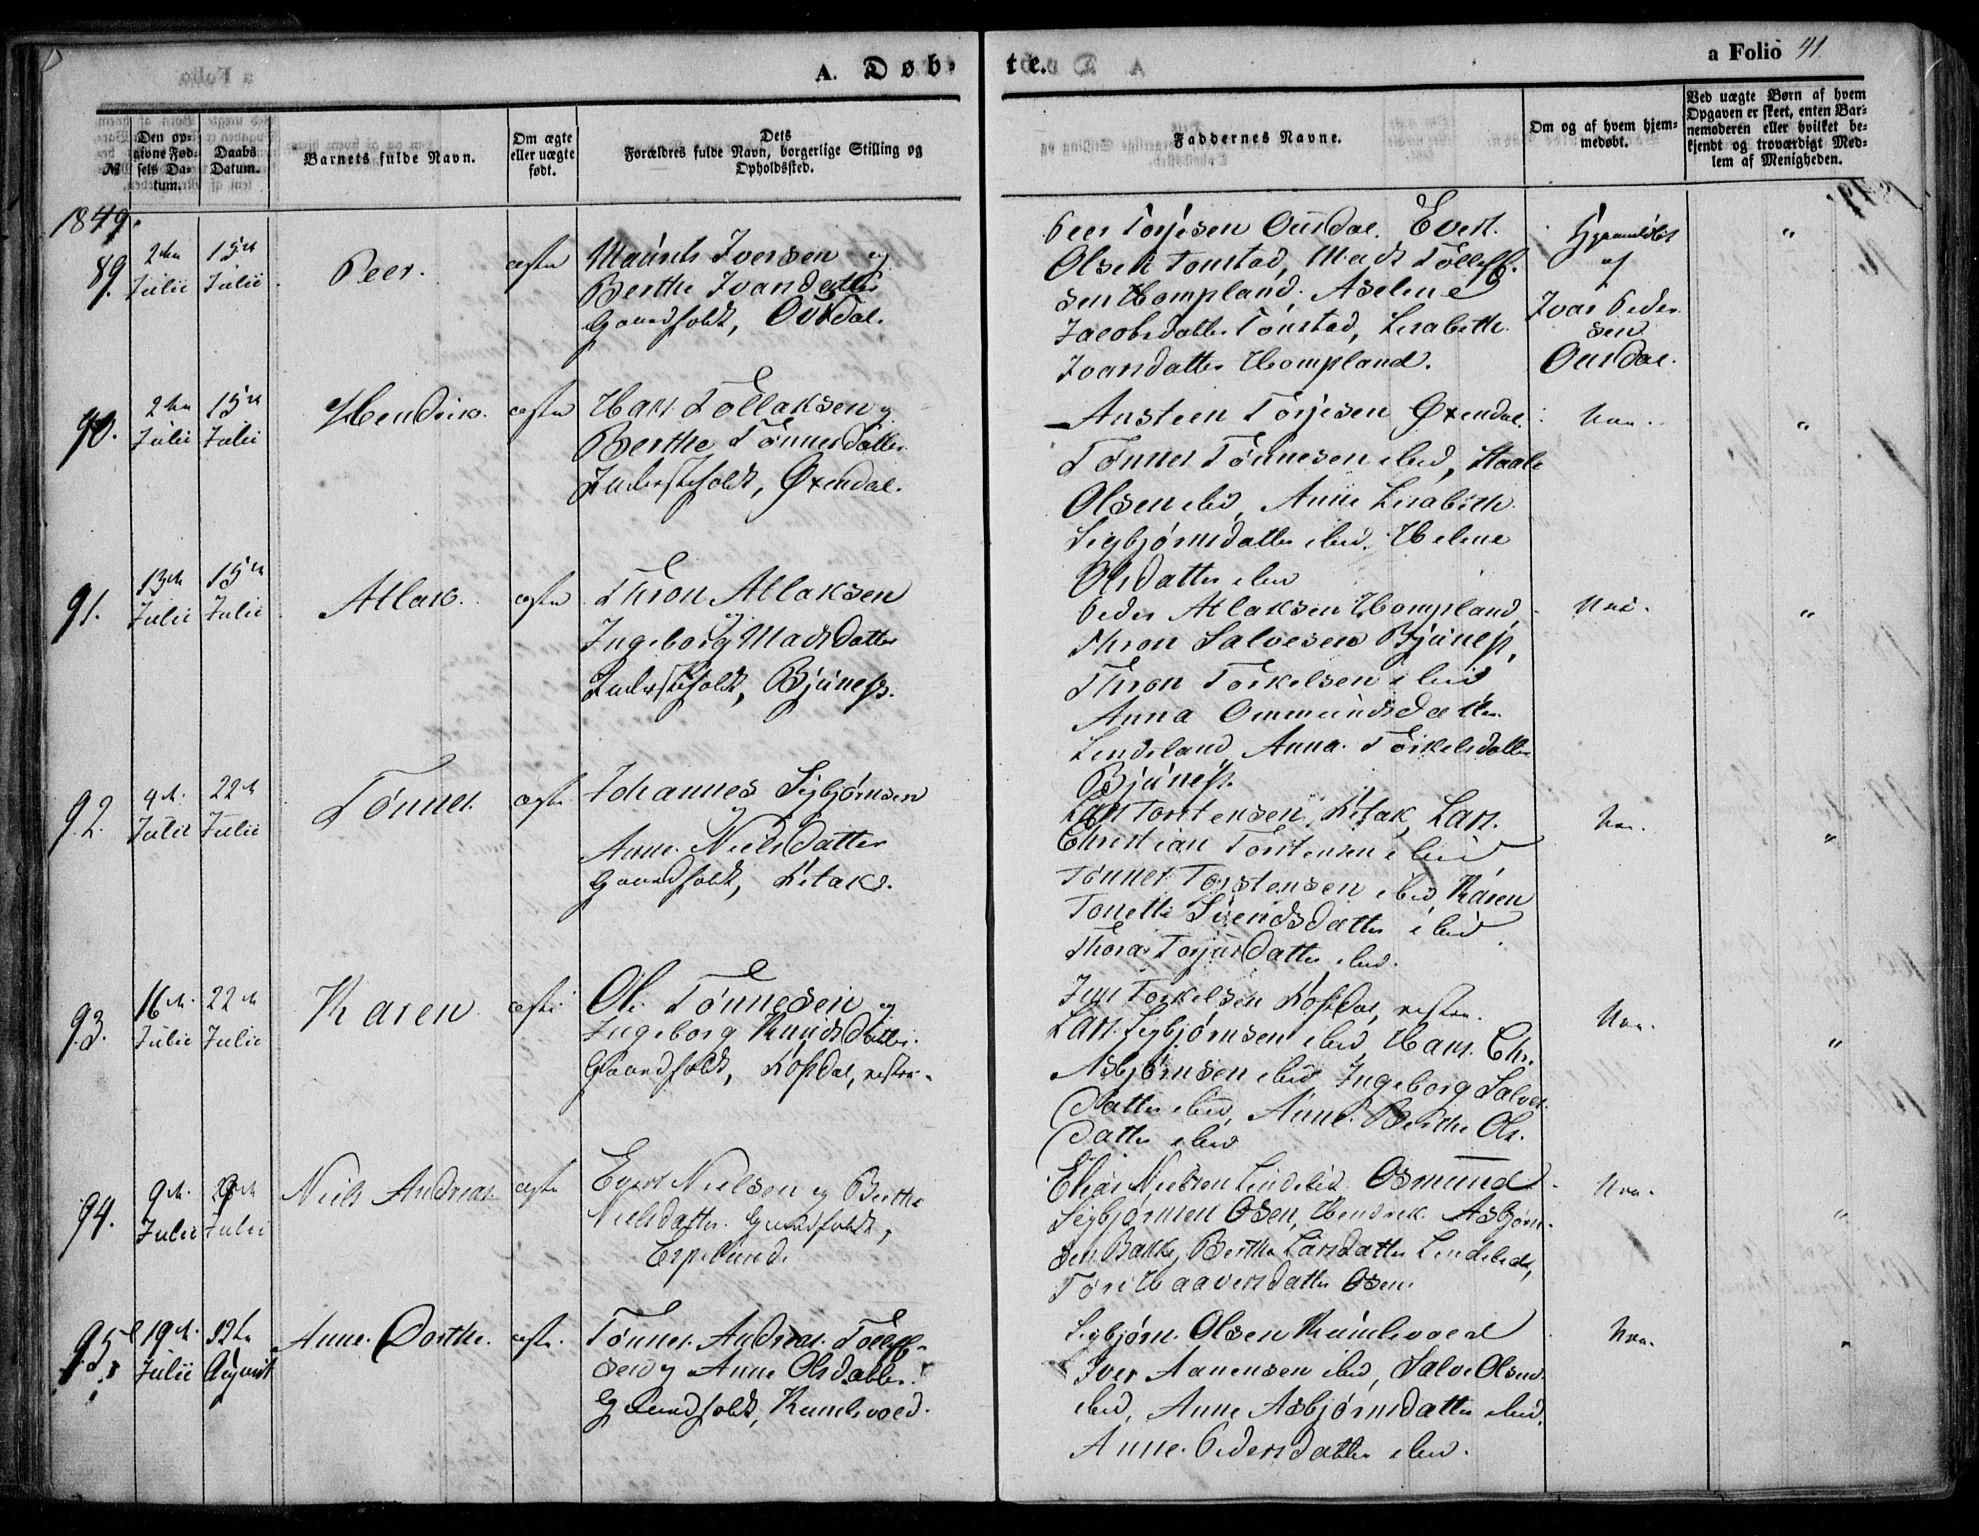 A. Døb-
te.
a Folio 41
№
Den op-
givne Fød-
sels Da-
tum.
Daabs
Datum.
Barnets fulde Navn.
Om ægte
eller uægte
født.
Dets
Forældres fulde Navn, borgerlige Stilling og
Opholdssted.
Faddernes Navne.
Om og af hvem hjem-
medøbt.
Ved uægte Børn af hvem
Opgaven er skeet, enten Bar-
nemoderen eller hvilket be-
kjendt og troværdigt Med-
lem af Menigheden.
1849.
89.
2den
Julii
15de
Julii
Peer.
ægte
Maurits Iversen og
Berthe Ivarsdatter
Gaardfolk, Ousdal.
Peer Torjesen Ousdal. Evert
Olsen Tonstad, Mads Tollef-
sen Hompland. Aselene
Jacobsdatter Tonstad, Lisabeth
Ivarsdatter Hompland.
Hjemmedøbt
af
Ivar Peder
sen
Ousdal.
"
90.
2den
Julii
15de
Julii
Hendrik.
ægte
Hans Tollaksen og
Berthe Tønnesdatter
Inderstfolk, Øxendal.
Ansteen Torjesen Øxendal.
Tønnes Tønnesen ibid, Staale
Olsen ibid, Anne Lisabeth
Sigbjørnsdatter ibid. Helene
Olsdatter ibid
Nei.
"
91.
13de
Julii
15de
Julii
Atlak.
ægte
Thron Atlaksen
og
Ingeborg Madsdatter
Inderstfolk, Bjunes.
Peder Atlaksen Hompland,
Thron Salvesen Bjunes,
Thron Torkelsen ibid
Anna Ommundsdatter
Lindeland, Anna Torkelsdatter
Bjunes.
Nei.
"
92.
4de
Julii
22de
Julii
Tønnes.
ægte
Johannes Sigbjørnsen
og
Anne Nielsdatter
Gaardfolk, Ketaks.
Lars Torstensen Ketak, Lars
Christian Torstensen ibid
Tønnes Torstensen ibid, Karen
Tonette Svendsdatter ibid.
Thora Torjusdatter ibid.
Nei.
"
93.
16de
Julii
22de
Julii
Karen
ægte
Ole Tønnesen og
Ingeborg Knudsdatter.
Gaardfolk, Josdal, vestre.
Jens Torkelsen Josdal, vestre.
Lars Sigbjørnsen ibid, Hans Chr.
Asbjørnsen ibid Ingeborg Salves-
datter ibid, Anne Berthe Ols-
datter ibid
Nei.
"
94.
9de
Julii
Julii
Niels Andreas
ægte
Evert Nielsen og Berthe
Nielsdatter. Gaardfolk,
Espelund.
Elias Nielsen Lindelid. Osmund
Sigbjørnsen Osen, Hendrik Asbjørn-
sen Bakke, Berthe Larsdatter Lindelid,
Tøri Haaversdatter Osen.
Nei.
"
95
19de
Julii
12te
August
Anne Dorthe.
ægte.
Tønnes Andreas Tollef-
sen og Anne Olsdatter.
Gaardfolk, Kumlevold.
Sigbjørn Olsen Kumlevold
Iver Aanensen ibid, Salve Olsen
ibid, Anne Asbjørnsdatter ibid,
Anne Pedersdatter ibid.
Nei.
"